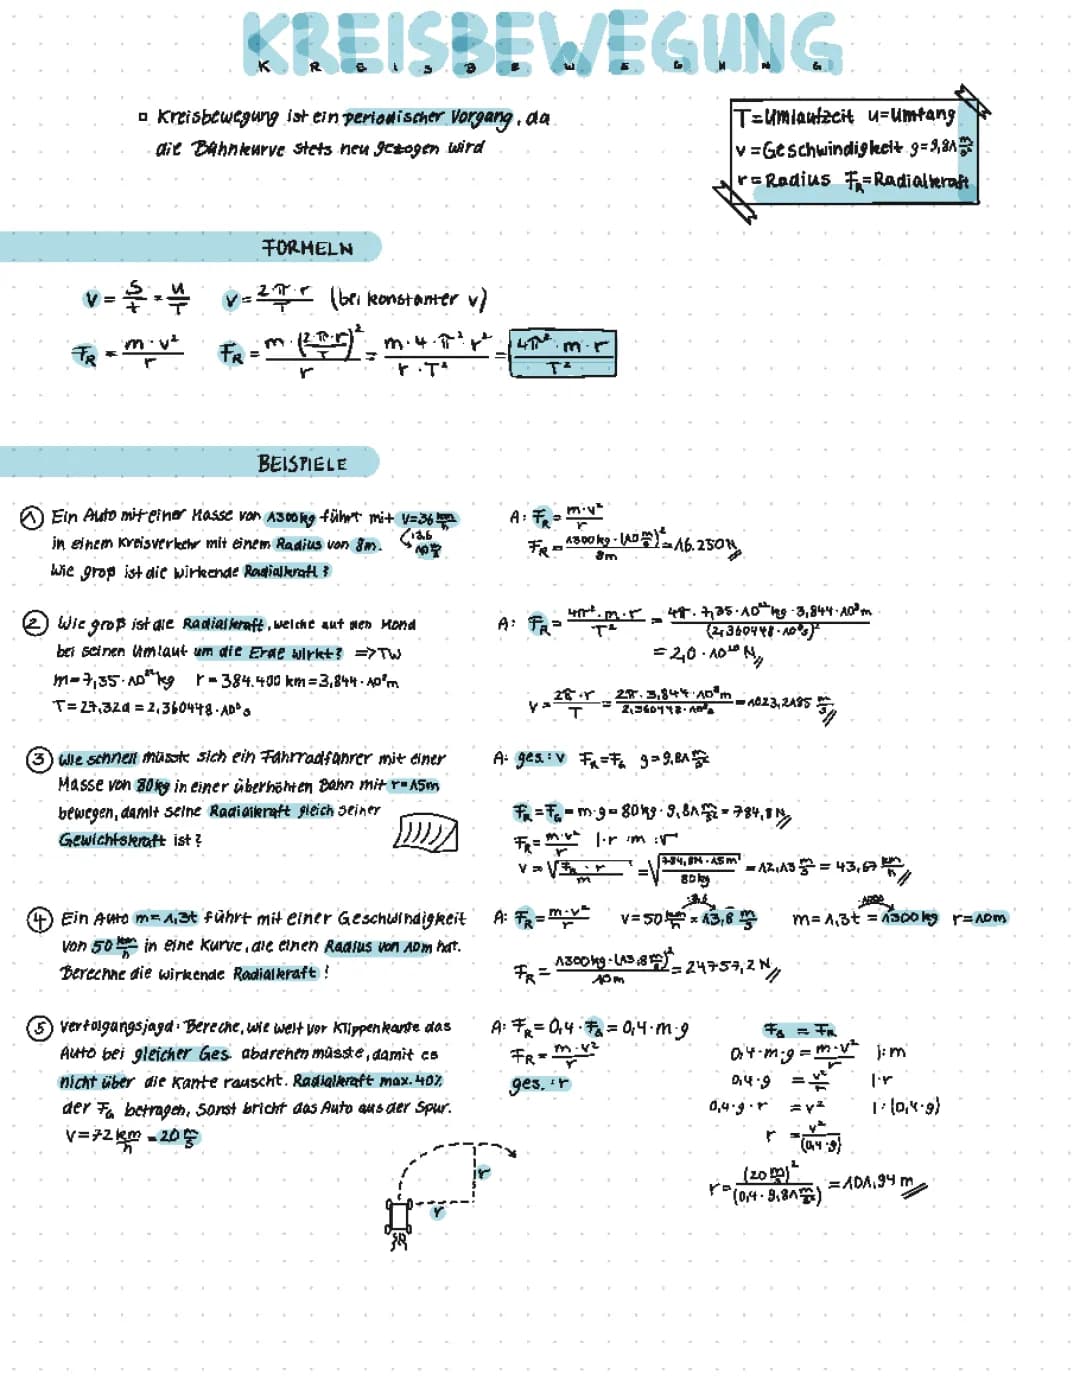 KREISBEWEGUNG
K R E I S B E W E G U N G
Kreisbewegung ist ein periodischer Vorgang, da
die Bahnkurve stets neu gezogen wird
T=Umlaufzeit u=Umfang
v=Geschwindigkeit g=9,81 m/s²
r=Radius F_R=Radialkraft
FORMELN
v = s/t = u/T v = 2π·r/T (bei konstanter v)
F_R = m·v²/r F_R = m·(2π·r/T)²/r = m·4·π²·r²/r·T² = 4π²·m·r/T²
BEISPIELE
① Ein Auto mit einer Masse von 1300kg führt mit v=36 km/h
in einem Kreisverkehr mit einem Radius von 8m. :3,6 10 m/s
Wie groß ist die wirkende Radialkraft?
A: F_R = m·v²/r
F_R = 1300kg·(10 m/s)²/8m = 16.250N
② Wie groß ist die Radialkraft, welche auf den Mond
bei seinen Umlauf um die Erde wirkt? => TW
m=7,35·10²²kg r=384.400 km=3,844·10⁸m
T=27,32d=2,360448·10⁶s
A: F_R = 4π²·m·r/T² = 4π·7,35·10²²kg·3,844·10⁸m/(2,360448·10⁶s)²
= 2,0·10²⁰ N
v = 2π·r/T = 2π·3,844·10⁸m/2,360448·10⁶s = 1023,2185 m/s
③ Wie schnell müsste sich ein Fahrradfahrer mit einer
Masse von 80kg in einer überhöhten Bahn mit r=15m
bewegen, damit seine Radialkraft gleich seiner
Gewichtskraft ist?
A: ges.: v F_R=F_G g=9,81 m/s²
F_R=F_G=m·g=80kg·9,81 m/s²=784,8N
F_R = m·v²/r |·r :m √
v = √(F_R·r/m) = √(784,8N·15m/80kg) = 12,13 m/s = 43,67 km/h
④ Ein Auto m=1,3t führt mit einer Geschwindigkeit
von 50 km/h in eine Kurve, die einen Radius von 10m hat.
Berechne die wirkende Radialkraft!
A: F_R = m·v²/r v=50 km/h :3,6 = 13,8 m/s m=1,3t ·1000 = 1300kg r=10m
F_R = 1300kg·(13,8 m/s)²/10m = 24757,2 N
⑤ Verfolgungsjagd: Bereche, wie weit vor Klippenkante das
Auto bei gleicher Ges. abdrehen müsste, damit es
nicht über die Kante rauscht. Radialkraft max. 40%
der F_G betragen, sonst bricht das Auto aus der Spur.
v=72 km/h = 20 m/s
r
r
A: F_R = 0,4·F_G = 0,4·m·g
F_R = m·v²/r
ges.: r
F_G = F_R
0,4·m·g = m·v²/r |:m
0,4·g = v²/r |·r
0,4·g·r = v² |:(0,4·g)
r = v²/(0,4·g)
r = (20 m/s)²/(0,4·9,81 m/s²) = 101,94 m